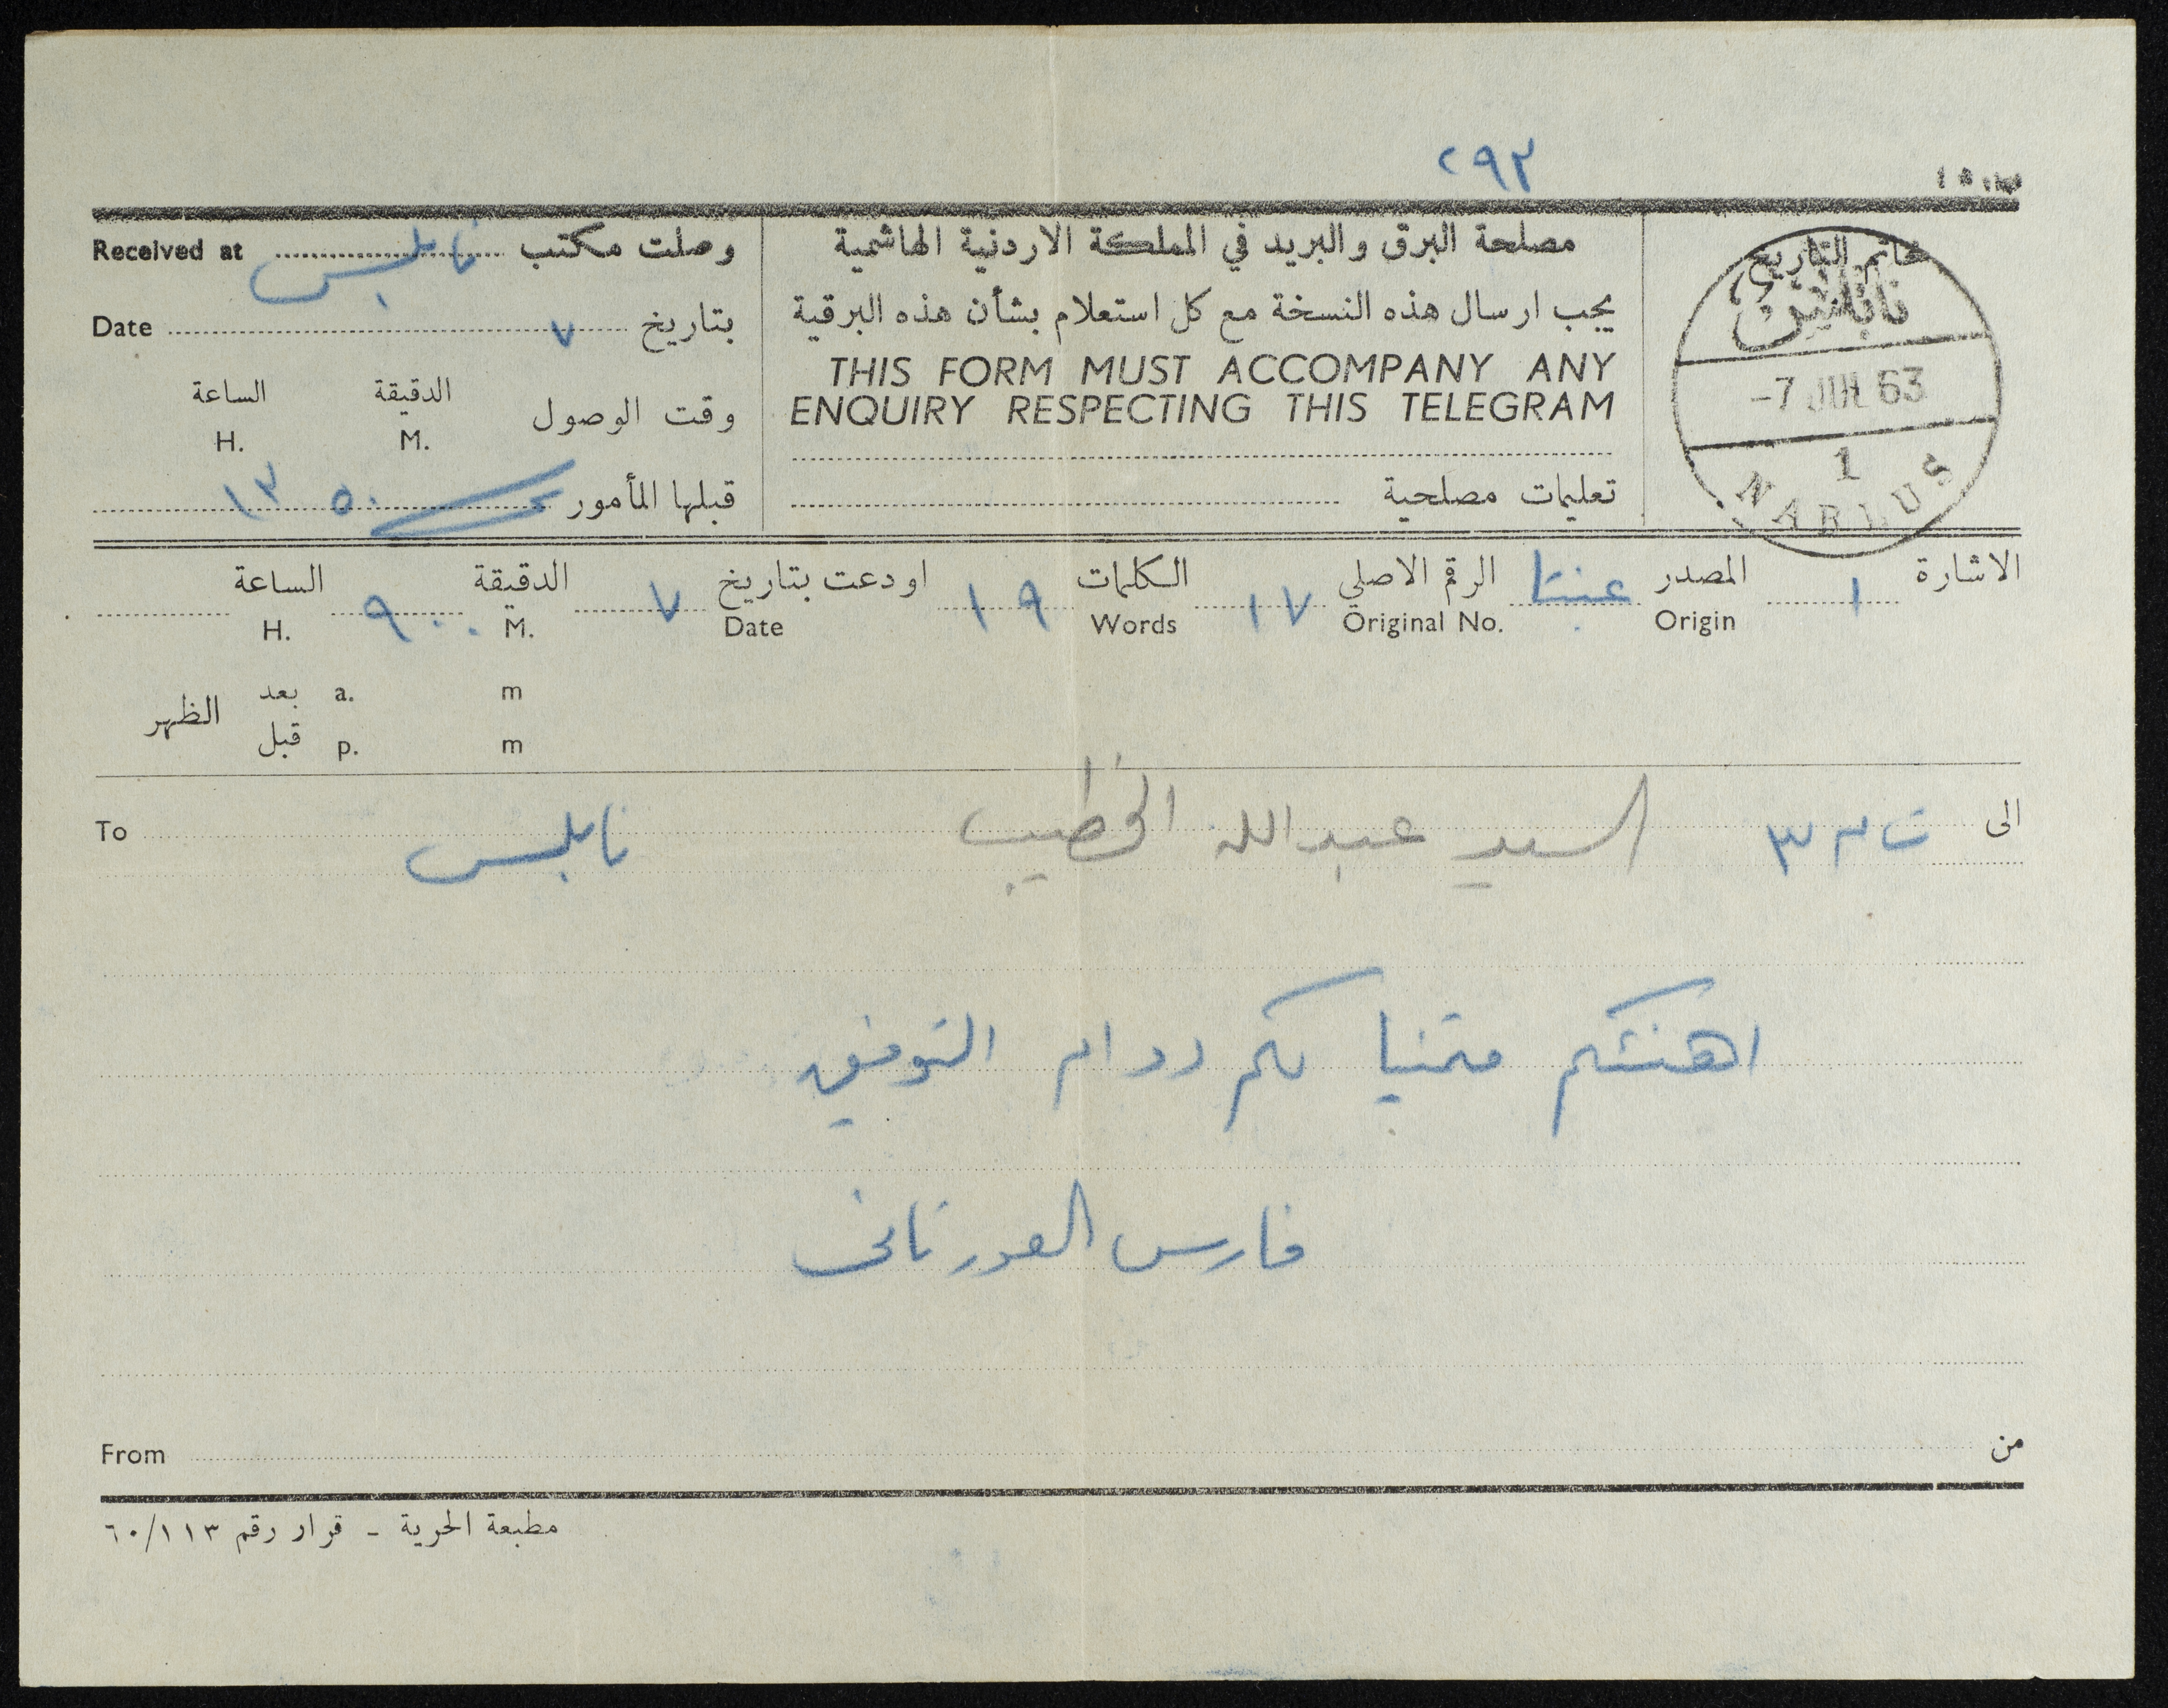 ٢٩٢
خاتم التاريخ
نابلس
-7 JUL 63
1
NABLUS
مصلحة البرق والبريد في المملكة الاردنية الهاشمية
يجب ارسال هذه النسخة مع كل استعلام بشأن هذه البرقية
THIS FORM MUST ACCOMPANY ANY
ENQUIRY RESPECTING THIS TELEGRAM
تعليمات مصلحية
وصلت مكتب نابلس Received at
بتاريخ ٧ Date
وقت الوصول الدقيقة الساعة
M. H.
قبلها المأمور ٥٠ ١٣
الاشارة ١ المصدر عنبتا الرقم الاصلي ١٧ الكلمات ١٩ اودعت بتاريخ ٧ الدقيقة ٠٠ ٩ الساعة
Origin Original No. Words Date M. H.
الظهر بعد a. m
قبل p. m
الى السيد عبدالله الخطيب نابلس To
اهنئكم متمنيا لكم دوام التوفيق
فارس
من From
مطبعة الحرية - قرار رقم ٦٠/١١٣